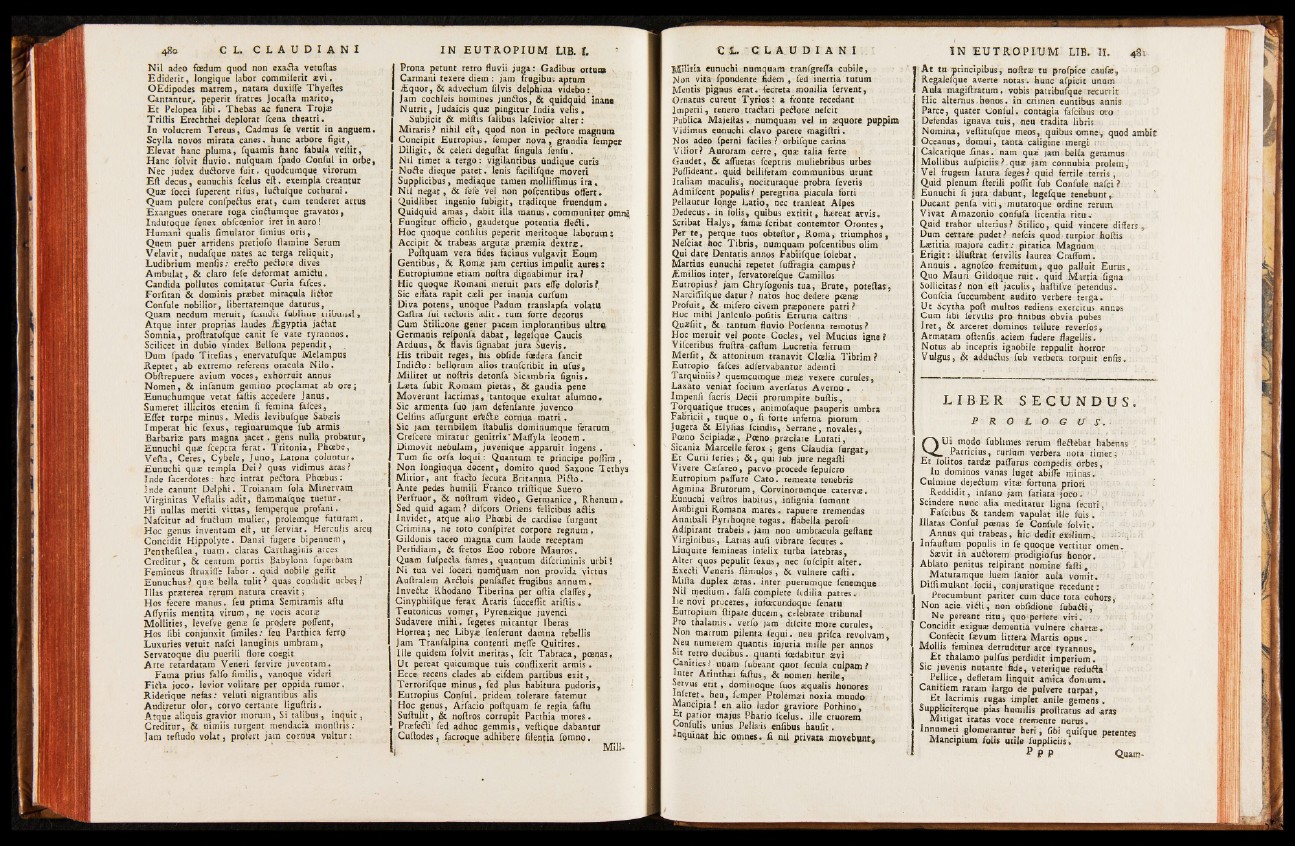 480 CL. CLAUDIANI
Nil adeo fœdum quod non exacta vetustas
Ediderit, longique labor commiserit ævi.
OEdipodes matrem, natam duxisse Thyestes
Cantantur, peperit fratres Jocasta marito,
Et Pelopea sibi. Thebas ac funera Trojæ
Tristis Erechthei deplorat scena theatri.
In volucrem Tereus, Cadmus se vertit in anguem.
Scylla novos mirata canes. hunc arbore figit,
Elevat hanc pluma, squamis hanc fabula vestit,
Hanc solvit fluvio. nusquam spado Consul in orbe,
Nec judex ductorve fuit. quodcumque virorum
Est decus, eunuchis scelus est. exempla creantur
Quæ socci superent risus, luctusque cothurni.
Quam pulcre conspectus erat, cum tenderet artus
Exangues onerate toga cinctumque gravatos,
Indutoque senex obscœnior iret in auro!
Humani qualis simulator simius oris,
Quem puer arridens pretioso stamine Serum
Velavit, nudasque nates ac terga reliquit,
Ludibrium mensis: erecto pectore dives
Ambulat, & claro sese deformat amictu.
Candida pollutos comitatur Curia fasces.
Forsitan & dominis præbet miracula lictor
Consule nobilior, libertatemque daturus,
Quam necdum meruit, scandit sublime tribunal,
Atque inter proprias laudes Ægyptia jactat
Somnia, prostratosque canit se vate tyrannos.
Scilicet in dubio vindex Bellona pependit,
Dum spado Tiresias, enervatusque Melampus
Reptet, ab extremo referens oracula Nilo.
Obstrepuere avium voces, exhorruit annus
Nomen, & insanum gemino proclamat ab ore;
Eunuchumque vetat fastis accedere Janus.
Sumeret illicitos etenim si femina fasces,
Esset turpe minus. Medis levibusque Sabæis
Imperat hic sexus, reginarumque sub armis
Barbariæ pars magna jacet. gens nulla probatur,
Eunuchi quæ sceptra ferat. Tritonia, Phœbe,
Vesta, Ceres, Cybele, Juno, Latona coluntur.
Eunuchi quæ templa Dei? quas vidimus aras?
Inde sacerdotes: hæc intrat pectora Phœbus:
Inde canunt Delphi. Trojanam sola Minervam
Virginitas Vestalis adit, flammasque tuetur.
Hi nullas meriti vittas, semperque profani.
Nascitur ad fructum mulier, prolemque futuram.
Hoc genus inventum est, ut serviat. Herculis arcu
Concidit Hippolyte. Danai fugere bipennem,
Penthesilea, tuam. claras Carthaginis arces
Creditur, & centum portis Babylona superbam
Femineus struxisse labor. quid nobile gessit
Eunuchus? quæ bella tulit? quas condidit urbes?
Illas præterea rerum natura creavit;
Hos fecere manus. seu prima Semiramis astu
Assyriis mentita virum, ne vocis acutæ
Mollities, levesve genæ se prodere possent,
Hos sibi conjunxit similes: seu Parthica ferro
Luxuries vetuit nasci lanuginis umbram,
Servatoque diu puerili flore coegit
Arte retardatam Veneri servire juventam.
Fama prius falso similis, vanoque videri
Ficta joco. levior volitare per oppida rumor.
Riderique nefas: veluti nigrantibus alis
Audiretur olor, corvo certante ligustris.
Atque aliquis gravior morum, Si talibus, inquit,
Creditur, & nimiis turgent mendacia monstris:
Jam testudo volat, profert jam cornua vultur:
IN EUTROPIUM LIB. I.
Prona petunt retro fluvii juga: Gadibus ortum
Carmani texere diem: jam frugibus aptum
Æquor, & advectum silvis delphina videbo:
Jam cochleis homines junctos, & quidquid inane
Nutrit, Judaicis quæ pingitur India velis.
Subjicit & mistis salibus lascivior alter:
Miraris? nihil est, quod non in pectore magnum
Concipit Eutropius. semper nova, grandia semper
Diligit, & celeri degustat singula sensu.
Nil timet a tergo: vigilantibus undique curis
Nocte dieque patet. lenis facilisque moveri
Supplicibus, mediaque tamen mollissimus ira,
Nil negat, & sese vel non poscentibus offert.
Quidlibet ingenio subigit, traditque fruendum.
Quidquid amas, dabit illa manus. communiter omni
Fungitur officio, gaudetque potentia flecti.
Hoc quoque conciliis peperit meritoque laborum:
Accipit & trabeas argutæ præmia dextræ.
Postquam vera fides facinus vulgavit Eoum
Gentibus, & Romæ jam certius impulit aures:
Eutropiumne etiam nostra dignabimur ira?
Hic quoque Romani meruit pars esse doloris?
Sic effata rapit cæli per inania cursum
Diva potens, unoque Padum translapsa volatu
Castra sui rectoris adit. tum forte decorus
Cum Stilicone gener pacem implorantibus ultro
Germanis responsa dabat, legesque Caucis
Arduus, & flavis signabat jura Suevis.
His tribuit reges, his obside fœdera sancit
Indicto: bellorum alios transcribit in usus,
Militet ut nostris detonsa Sicambria signis.
Læta subit Romam pietas, & gaudia pene
Moverunt lacrimas, tantoque exultat alumno.
Sic armenta suo jam defensante juvenco
Celsius assurgunt erectæ cornua matri.
Sic jam terribilem stabulis dominumque ferarum
Crescere miratur genitrix Massyla leonem.
Dimovit nebulam, juvenique apparuit ingens.
Tum sic orsa loqui: Quantum te principe possim,
Non longinqua docent, domito quod Saxone Tethys
Mitior, aut fracto secura Britannia Picto.
Ante pedes humili Franco tristique Suevo
Perfruor, & nostrum video, Germanice, Rhenum.
Sed quid agam? discors Oriens felicibus actis
Invidet, atque alio Phœbi de cardine surgunt
Crimina, ne toto conspiret corpore regnum.
Gildonis taceo magna cum laude receptam
Perfidiam, & fretos Eoo robore Mauros.
Quam suspecta fames, quantum discriminis urbi!
Ni tua vel soceri numquam non provida virtus
Australem Arctois pensasset frugibus annum.
Invectæ Rhodano Tiberina per ostia classes,
Cinyphiisque ferax Araris successit aristis.
Teutonicus vomer, Pyrenæique juvenci
Sudavere mihi. segetes mirantur Iberas
Horrea; nec Libyæ senserunt damna rebellis
Jam Transalpina contenti messe Quirites.
Ille quidem solvit meritas, scit Tabraca, pœnas.
Ut pereat quicumque tuis conflixerit armis.
Ecce recens clades ab eisdem partibus exit,
Terrorisque minus, sed plus habitura pudoris,
Eutropius Consul. pridem tolerare fatemur
Hoc genus, Arsacio postquam se regia fastu
Sustulit, & nostros corrupit Parthia mores.
Præfecti sed adhuc gemmis, vestique dabantur
Custodes, sacroque adhibere silentia somno.
Mili-
CL. CLAUDIANI
Militia eunuchi numquam transgressa cubile,
Non vita spondente fidem, sed inertia tutum
Mentis pignus erat. secreta monilia servent,
Ornatus curent Tyrios: a fronte recedant
Imperii, tenero tractari pectore nescit
Publica Majestas. numquam vel in æquore puppim
Vidimus eunuchi clavo parere magistri.
Nos adeo sperni faciles? orbisque carina
Vilior? Auroram certe, quæ talia ferre
Gaudet, & assuetas sceptris muliebribus urbes
Possideant. quid belliferam communibus urunt
Italiam maculis, nocituraque probra severis
Admiscent populis? peregrina piacula forti
Pellantur longe Latio, nec transeat Alpes
Dedecus. in solis, quibus extitit, hæreat arvis.
Scribat Halys, famæ scribat contemtor Orontes,
Per te, perque tuos obtestor, Roma, triumphos,
Nesciat hoc Tibris, numquam poscentibus olim
Qui dare Dentatis annos Fabiisque solebat.
Martius eunuchi repetet suffragia campus?
Æmilios inter, servatoresque Camillos
Eutropius? jam Chrysogonis tua, Brute, potestas,
Narcissisque datur? natos hoc dedere pœnæ
Profuit, & misero civem præponere patri?
Hoc mihi Janiculo positis Etruria castris
Quæsiit, & tantum fluvio Porsenna remotus?
Hoc meruit vel ponte Cocles, vel Mucius igne?
Visceribus frustra castum Lucretia ferrum
Mersit, & attonitum tranavit Clœlia Tibrim?
Eutropio fasces adservabantur ademti
Tarquiniis? quemcumque meæ vexere curules,
Laxato veniat socium aversatus Averno.
Impensi sacris Decii prorumpite bustis,
Torquatique truces, animosaque pauperis umbra
Fabricii, tuque o, si forte inferna piorum
Jugera & Elysias scindis, Serrane, novales,
Pœno Scipiadæ, Pœno præclare Lutati,
Sicania Marcelle ferox, gens Claudia surgat,
Et Curii series; &, qui sub jure negasti
Vivere Cæsareo, parvo procede sepulcro
Eutropium passure Cato. remeate tenebris
Agmina Brutorum, Corvinorumque catervæ.
Eunuchi vestros habitus, insignia sumunt
Ambigui Romana mares. rapuere tremendas
Annibali Pyrrhoque togas. flabella perosi
Adspirant trabeis. jam non umbracula gestant
Virginibus, Latias ausi vibrare secures.
Linquite femineas infelix turba latebras,
Alter quos pepulit sexus, nec suscipit alter.
Execti Veneris stimulos, & vulnere casti.
Mista duplex ætas. inter puerumque senemque
Nil medium. falsi complete sedilia patres.
Ite novi proceres, infœcundoque senatu
Eutropium stipate ducem, celebrate tribunal
Pro thalamis. verso jam discite more curules,
Non matrum pilenta sequi. neu prisca revolvam,
Neu numerem quantis injuria mille per annos
Sit retro ducibus. quanti fœdabitur ævi
Canities? unam subeant quot secula culpam?
Inter Arinthæi fastus, & nomen herile,
Servus erit, dominoque suos æqualis honores
Inseret. heu, semper Ptolemæi noxia mundo
Mancipia! en alio lædor graviore Pothino,
Et patior majus Phario scelus. ille cruorem
Consulis unius Pellæis ensibus hausit.
Inquinat hic omnes. si nil privata movebunt,
IN EUTROPIUM LIB. II. 481
At tu principibus, nostræ tu prospice causæ,
Regalesque averte notas. hunc aspicit unum
Aula magistratum. vobis patribusque recurrit
Hic alternus honos. in crimen euntibus annis
Parce, quater Consul. contagia fascibus oro
Defendas ignava tuis, neu tradita libris
Nomina, vestitusque meos, quibus omne, quod ambit
Oceanus, domui, tanta caligine mergi
Calcarique sinas. nam quæ jam bella geramus
Mollibus auspiciis? quæ jam connubia prolem,
Vel frugem latura seges? quid fertile terris,
Quid plenum sterili possit sub Consule nasci?
Eunuchi si jura dabunt, legesque tenebunt,
Ducant pensa viri, mutatoque ordine rerum
Vivat Amazonio confusa licentia ritu.
Quid trahor ulterius? Stilico, quid vincere differs,
Dum certare pudet? nescis quod turpior hostis
Lætitia majore cadit: piratica Magnum
Erigit: illustrat servilis laurea Crassum.
Annuis. agnosco fremitum, quo palluit Eurus,
Quo Mauri Gildoque ruit. quid Martia signa
Sollicitas? non est jaculis, hastisve petendus.
Conscia succumbent audito verbere terga.
Ut Scytha post multos rediens exercitus annos
Cum sibi servilis pro finibus obvia pubes
Iret, & arceret dominos tellure reversos,
Armatam ostensis aciem fudere flagellis.
Notus ab inceptis ignobile reppulit horror
Vulgus, & adductus sub verbera torpuit ensis.
LIBER SECUNDUS.
PROLOGUS.
QUi modo sublimes rerum flectebat habenas
Patricius, rursum verbera nota timet:
Et solitos tardæ passurus compedis orbes,
In dominos vanas luget abisse minas.
Culmine dejectum vitæ fortuna priori
Reddidit, insano jam satiata joco.
Scindere nunc alia meditatur ligna securi,
Fascibus & tandem vapulat ille suis.
Illatas Consul pœnas se Consule solvit.
Annus qui trabeas, hic dedit exilium.
Infaustum populis in se quoque vertitur omen.
Sævit in auctorem prodigiosus honor.
Ablato penitus respirant nomine fasti,
Maturamque luem sanior aula vomit.
Dissimulant socii, conjuratique recedunt:
Procumbunt pariter cum duce tota cohors,
Non acie victi, non obsidione subacti,
Ne pereant ritu, quo periere viri.
Concidit exiguæ dementia vulnere chartæ.
Confecit sævum littera Martis opus.
Mollis feminea detruditur arce tyrannus,
Et thalamo pulsus perdidit imperium.
Sic juvenis nutante fide, veterique reducta
Pellice, desletam linquit amica domum.
Canitiem raram largo de pulvere turpat,
Et lacrimis rugas implet anile gemens.
Suppliciterque pias humilis prostratus ad aras
Mitigat iratas voce tremente nurus.
Innumeri glomerantur heri, sibi quisque petentes
Mancipium solis utile suppliciis.
PPP Quam-